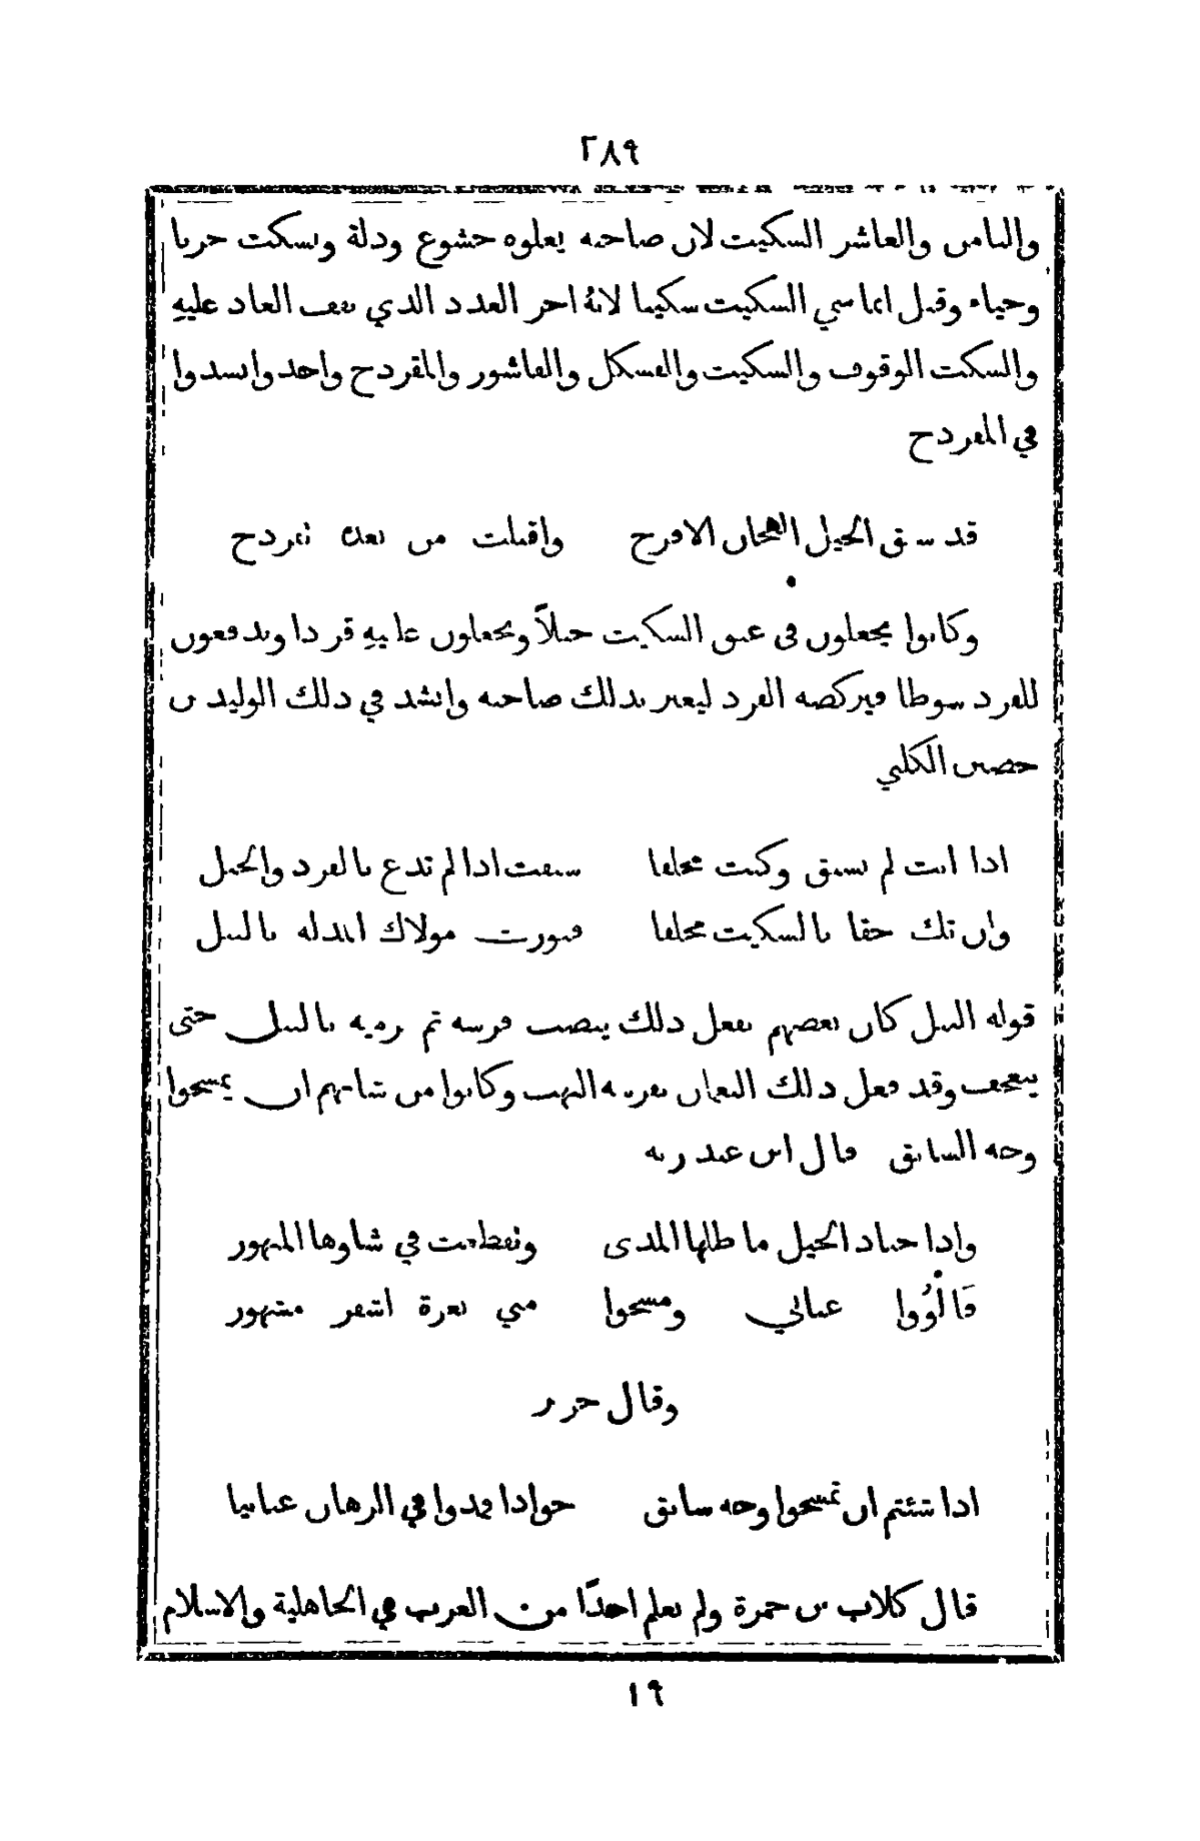 ٢٨٩
والثامن والعاشر السكيت لان صاحبه يعلوه خشوع وذلة ويسكت حزنا
وحياء وقيل انما سمي السكيت سكيتا لانهُ اخر العدد الذي يقف العاد عليهِ
والسكت الوقوف والسكيت والفسكل والقاشور والمقردح واحد وانشدوا
في المقردح
قد سبق الخيل الهجان الاقرح واقبلت من بعده تقردح
وكانوا يجعلون في عنق السكيت حبلاً ويجعلون عليهِ قردا ويدفعون
للقرد سوطا فيركضه القرد ليعير بذلك صاحبه وانشد في ذلك الوليد بن
حصين الكلبي
اذا انت لم تسبق وكنت مخلفا سبقت اذا لم تدع بالقرد والحبل
وان تك حقا بالسكيت مخلفا فتورث مولاك المذلة بالنبل
قوله النبل كان بعضهم يفعل ذلك ينصب فرسه ثم يرميه بالنبل حتى
يتعجف وقد فعل ذلك النعمان بفرسه النهب وكانوا من شانهم ان يمسحوا
وجه السابق قال ابن عبد ربه
واذا جياد الخيل ماطلها المدى وتقطعت في شاوها المبهور
خَالَوْا عناني ومسحوا مني بغرة اشقر مشهور
وقال جرير
اذا شئتم ان تمسحوا وجه سابق جوادا فمدوا في الرهان عنانيا
قال كلاب بن حمزة ولم نعلم احدًا من العرب في الجاهلية والاسلام
١٩